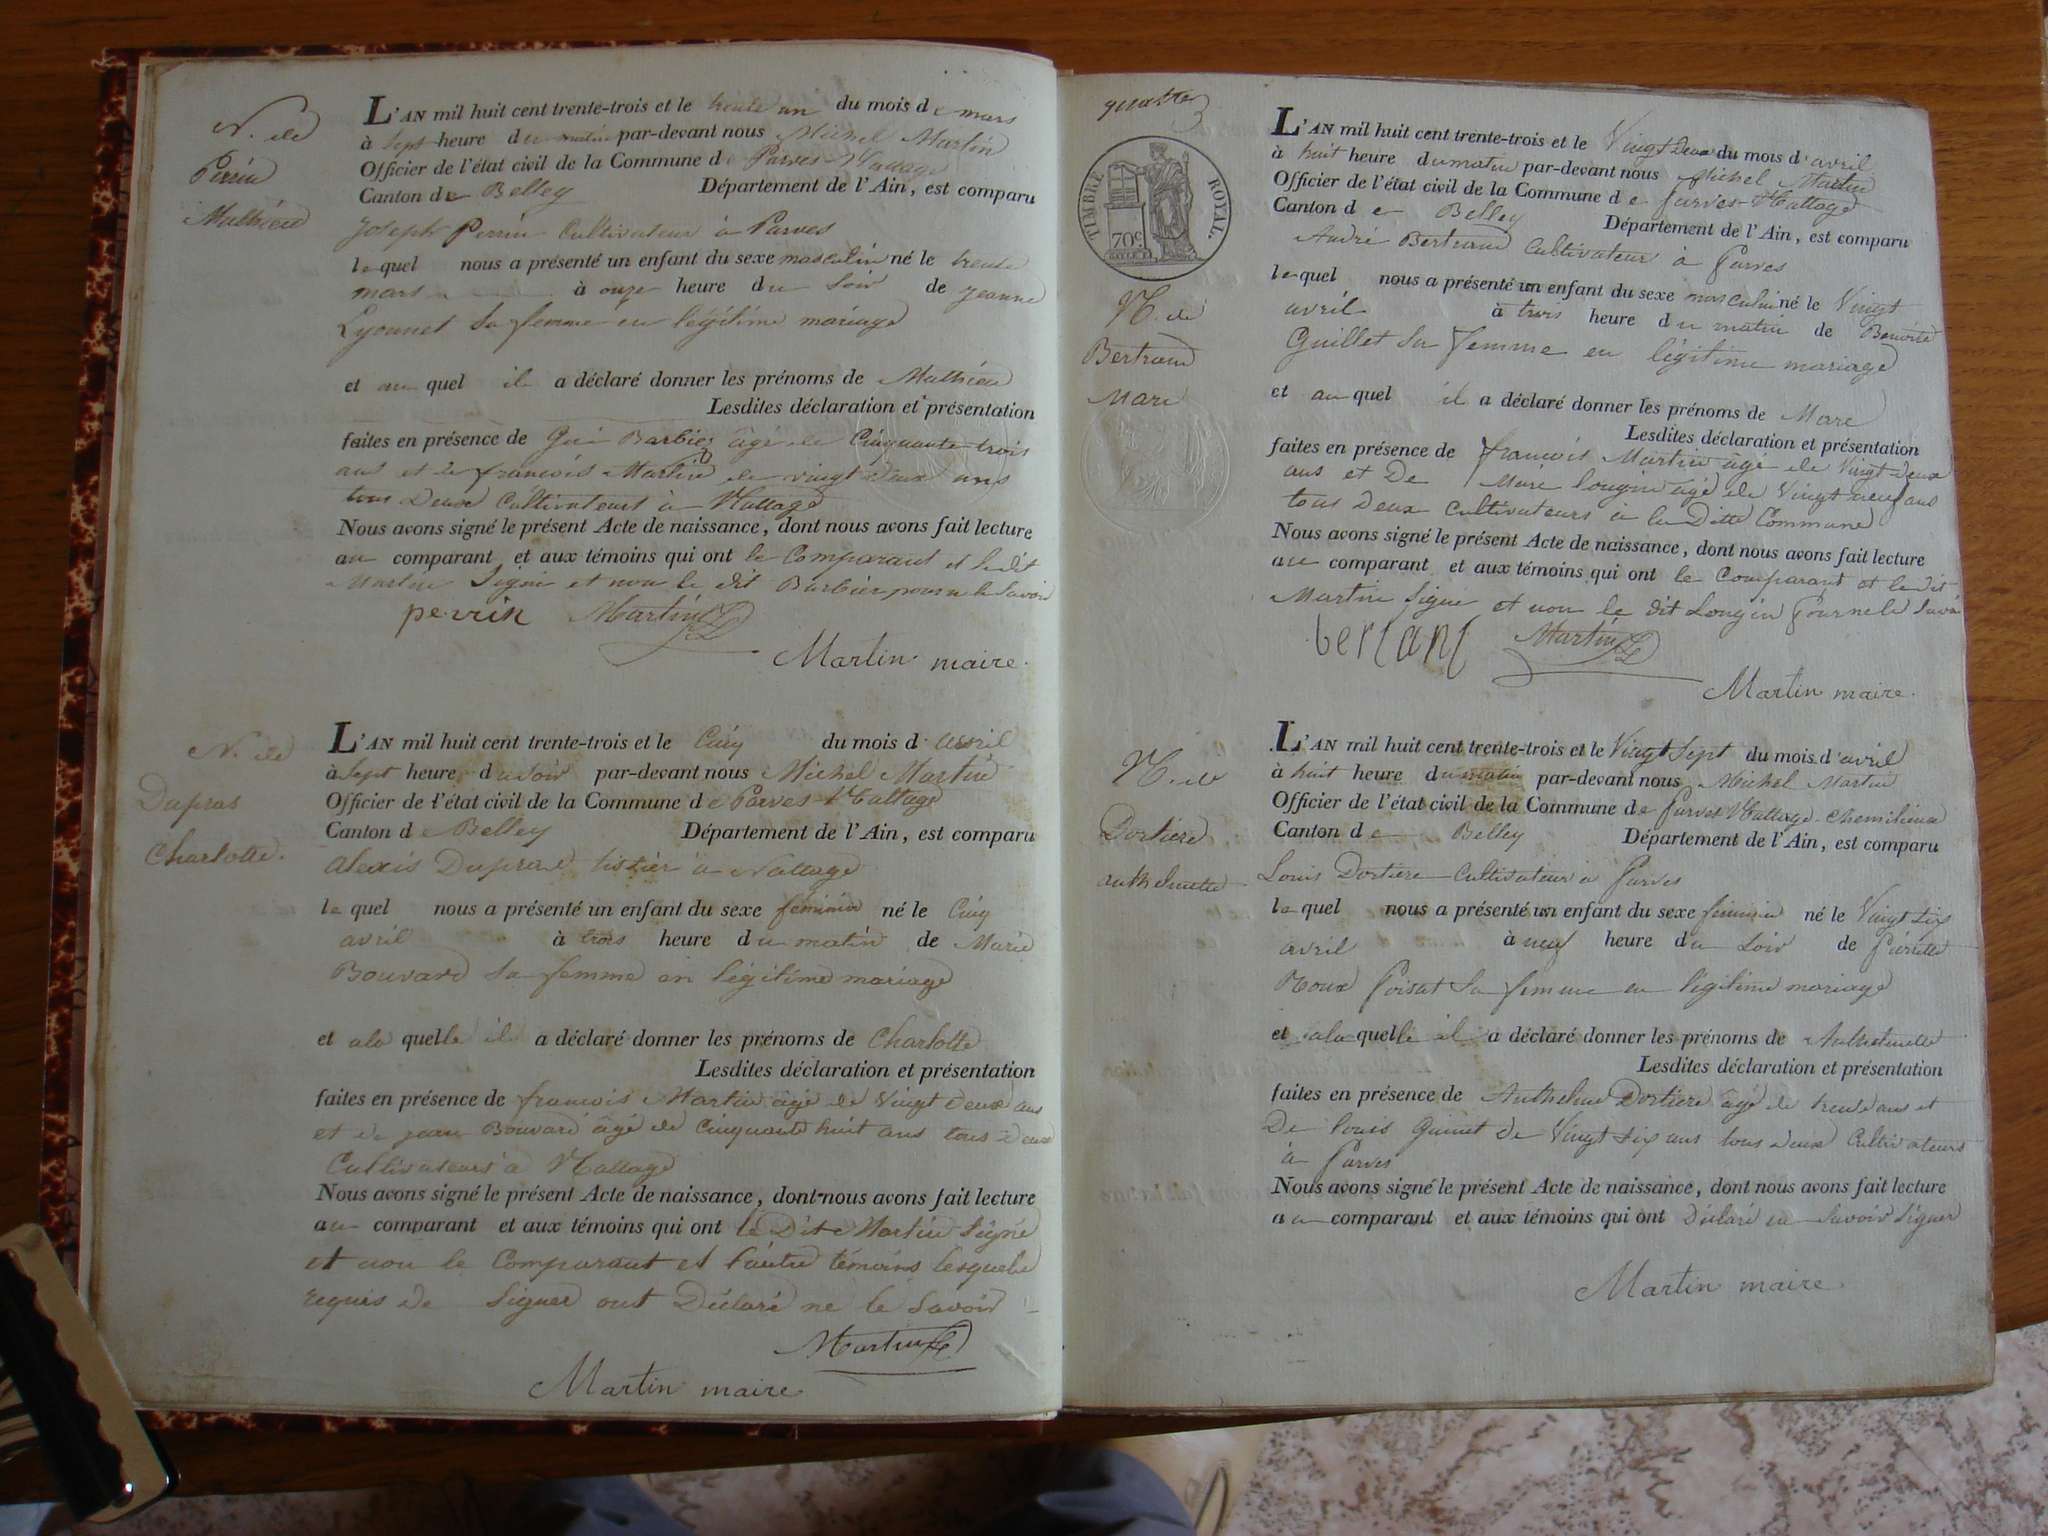 N. de
Perrin
Mathieu
L'AN mil huit cent trente-trois et le trente un du mois de mars
à sept heure du matin par-devant nous Michel Martin
Officier de l'état civil de la Commune de Parves-Nattage
Canton de Belley Département de l'Ain, est comparu
Joseph Perrin Cultivateur à Parves
lequel nous a présenté un enfant du sexe masculin né le trente
mars à onze heure du soir de jeanne
Lyonnet sa femme en légitime mariage
et au quel il a déclaré donner les prénoms de Mathieu
Lesdites déclaration et présentation
faites en présence de Barbier âgé de Cinquante trois
ans et de francois Martin de vingt deux ans
tous Deux Cultivateurs à Nattage
Nous avons signé le présent Acte de naissance, dont nous avons fait lecture
au comparant et aux témoins qui ont le Comparant et le dit
Martin Signé et non le dit Barbier pour ne le Savoir
perrin Martin
Martin maire.
N. de
Dupras
Charlotte.
L'AN mil huit cent trente-trois et le Cinq du mois d'avril
à Sept heure du soir par-devant nous Michel Martin
Officier de l'état civil de la Commune de Parves-Nattage
Canton de Belley Département de l'Ain, est comparu
Alexis Dupras tissier à Nattage
lequel nous a présenté un enfant du sexe féminin né le Cinq
avril à trois heure du matin de Marie
Bouvard sa femme en légitime mariage
et ala quelle il a déclaré donner les prénoms de Charlotte
Lesdites déclaration et présentation
faites en présence de francois Martin âgé de Vingt Deux ans
et de jean Bouvard âgé de Cinquante huit ans tous Deux
Cultivateurs à Nattage
Nous avons signé le présent Acte de naissance, dont nous avons fait lecture
au comparant et aux témoins qui ont le Dit Martin Signé
et non le Comparant et l'autre témoins lesquels
requis de Signer ont Déclaré ne le Savoir
Martin
Martin maire
quatre
TIMBRE ROYAL.
70c
N. de
Bertrand
Marc
L'AN mil huit cent trente-trois et le Vingt Deux du mois d'avril
à huit heure du matin par-devant nous Michel Martin
Officier de l'état civil de la Commune de parves-Nattage
Canton de Belley Département de l'Ain, est comparu
André Bertrand Cultivateur à parves
lequel nous a présenté un enfant du sexe masculin né le Vingt
avril à trois heure du matin de Benoite
Guillet sa femme en légitime mariage
et au quel il a déclaré donner les prénoms de Marc
Lesdites déclaration et présentation
faites en présence de francois Martin âgé de Vingt deux
ans et De Marc longin âgé de Vingt neuf ans
tous Deux Cultivateurs à la Ditte Commune
Nous avons signé le présent Acte de naissance, dont nous avons fait lecture
au comparant et aux témoins qui ont le Comparant et le dit
Martin Signé et non le dit Longin pour ne le Savoir
Martin
Martin maire.
N. de
Dortiere
anthelmette
L'AN mil huit cent trente-trois et le Vingt Sept du mois d'avril
à huit heure du matin par-devant nous Michel Martin
Officier de l'état civil de la Commune de parves Nattage-Chemilieux
Canton de Belley Département de l'Ain, est comparu
Louis Dortiere Cultivateur à parves
lequel nous a présenté un enfant du sexe féminin né le Vingt six
avril à neuf heure du Soir de pierrette
Roux poisat sa femme en légitime mariage
et ala quelle il a déclaré donner les prénoms de Anthelmette
Lesdites déclaration et présentation
faites en présence de Anthelme Dortiere âgé de trente ans et
De louis Guinet de Vingt six ans tous deux Cultivateurs
à parves
Nous avons signé le présent Acte de naissance, dont nous avons fait lecture
au comparant et aux témoins qui ont Déclaré ne Savoir Signer
Martin maire